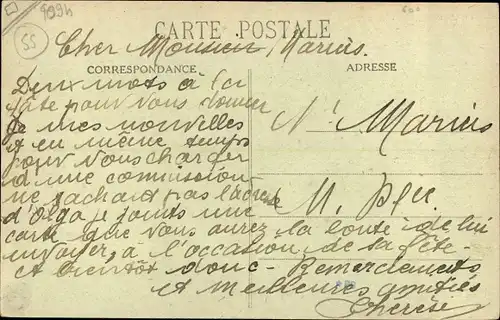 909h
55
CARTE POSTALE
Cher Monsieur Marius.
CORRESPONDANCE
ADRESSE
Deux mots à la
hâte pour vous donner
de mes nouvelles
et en même temps
pour vous charger
d'une commission
ne sachant pas l'adresse
d'Olga je joints une
carte que vous aurez la bonté de lui
envoyer, à l'occasion de sa fête-
et bientôt donc - Remerciements
et meilleures amitiés
Thérèse
Mr Marius
M.